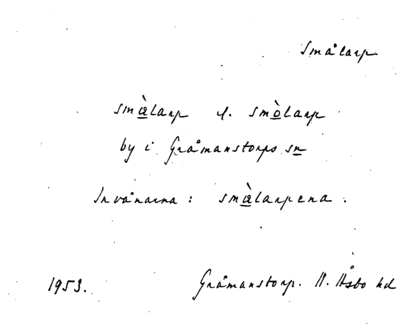 Smålarp
smä̀larp l. smò̱larp
by i Gråmanstorps sn
Invånarna: smä̀larpena.
1953. Gråmanstorp. N. Åsbo hd